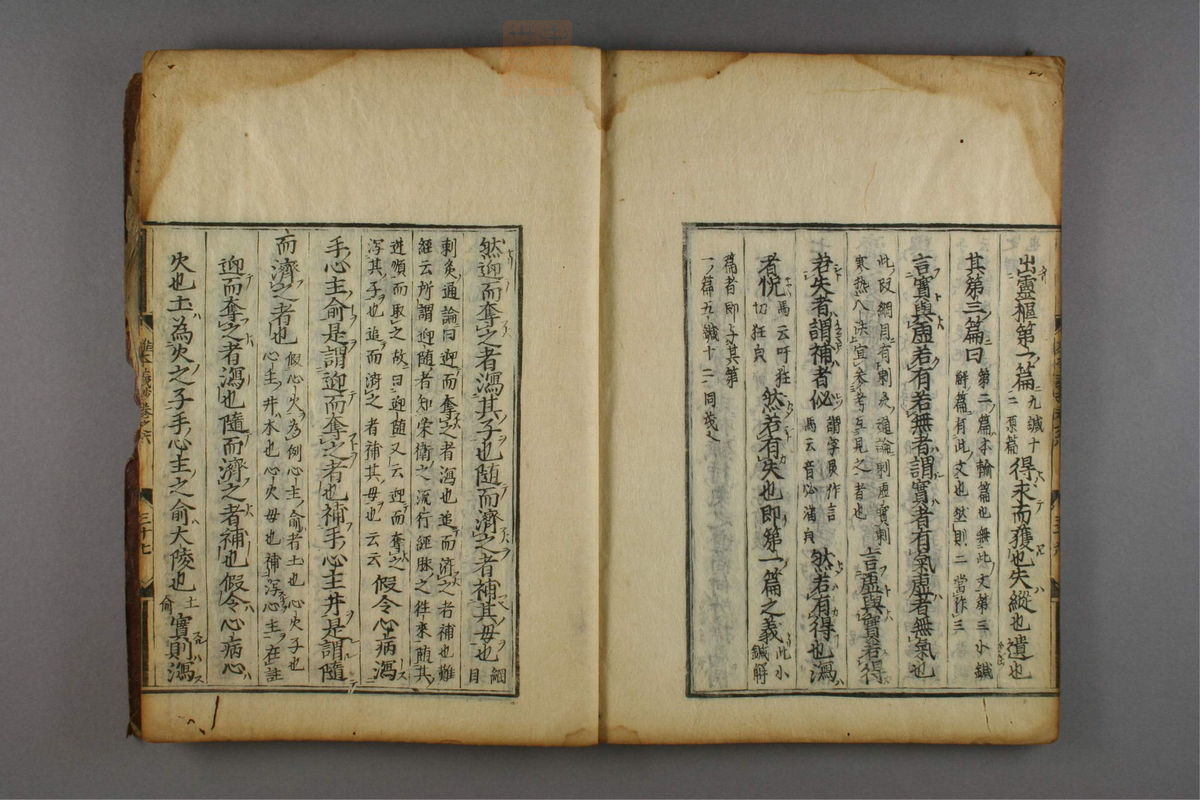 出靈樞第一篇九鍼十二原篇得求而獲也失縱也遺也
其第三篇曰第二篇本輸篇也無此文第三小鍼解篇有此文也然則二當作三
言實與虚若有若無者謂實者有氣虚者無氣也
此段綱目有刺灸通論刺虚實刺寒熱八法宜參考互見之者也言虚與實若得
若失者謂補者佖謂字展作言馬云音必滿皃然若有得也瀉
者怳馬云吁狂切狂皃然若有失也即第一篇之義此小鍼解
篇者即与其第一篇五鍼十二同義
然迎而奪之者瀉其子也随而濟之者補其母也綱目
刺灸通論曰迎而奪之者瀉也追而濟之者補也難經云所謂迎随者知栄衛之流行經脉之徃來随其
逆順而取之故曰迎随又云迎而奪之瀉其子也追而濟之者補其母也云云假令心病瀉
手心主俞是謂迎而奪之者也補手心主井是謂隨
而濟之者也假心火為例心主俞者土也心火子也心主井木也心火母也補瀉心主在註
迎而奪之者瀉也隨而濟之者補也假令心病心
火也土為火之子手心主之俞大陵也土俞實則瀉
三十七